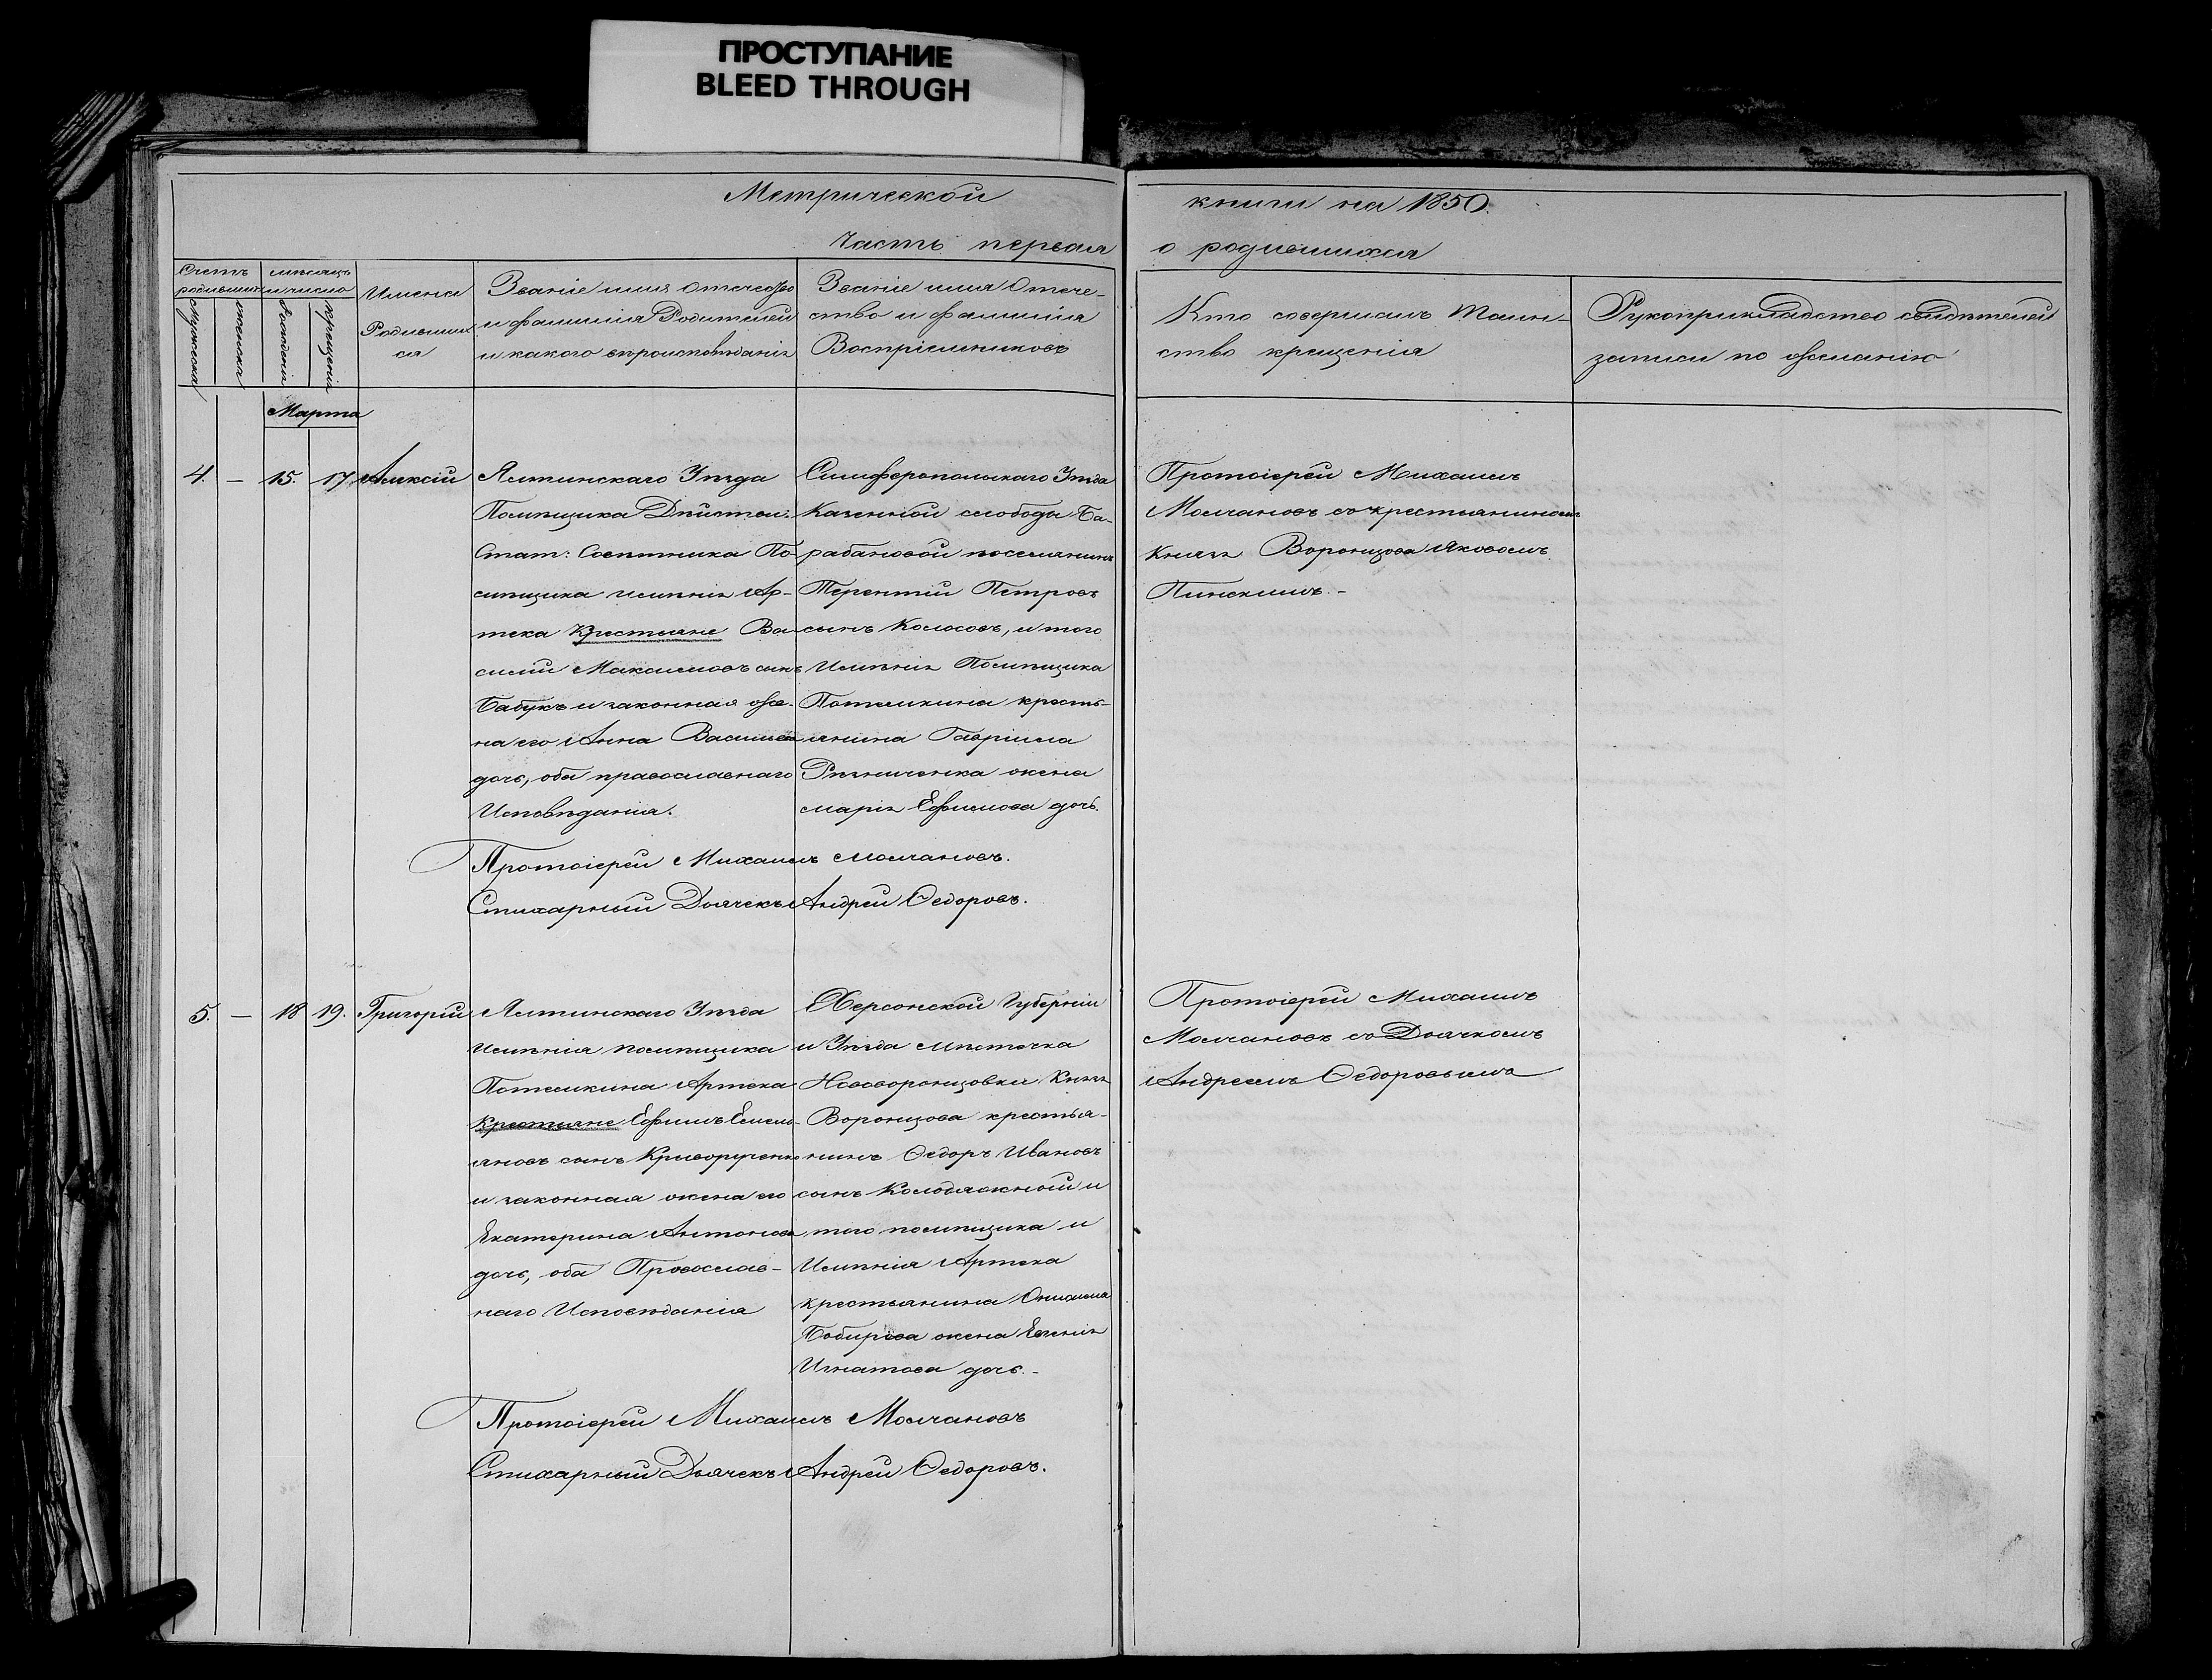 ПРОСТУПАНИЕ
BLEED THROUGH
Метрической
книги на 1850.
Часть первая
о родившихся
Счетъ родившихся
мужеска
женска
мѣсяцъ и число
рожденія
крещенія
Имена
Родивших
ся
Званіе имя отечество
и фамилія Родителей
и какого вѣроисповѣданія
Званіе имя Отече-
ство и фамилія
Воспріемниковъ
Кто совершалъ Таин-
ство крещенія
Рукоприкладство свидѣтелей
записи по желанію
Марта
4. — 15. 17 Алексій
Ялтинскаго Уѣзда
Помѣщика Дѣйстви:
Стат: Совѣтника По-
имѣнія Ар-
тека Крестьяне Ва-
силій Максимовъ сынъ
Бабукъ и законная же-
на его Анна Васильева
дочь, оба православнаго
Исповѣданія.
Симферопольскаго Уѣзда
Казенной слободы Ба-
рабановой поселянинъ
Терентій Петровъ
сынъ Колосовъ, и того
Имѣнія Помѣщика
Потемкина кресть-
янина Гавріила
Рѣзниченка жена
марія Ефимова дочь.
Протоіерей Михаилъ
Молчановъ съ крестьяниномъ
Князя Воронцова Яковомъ
Пинскимъ.-
Протоіерей Михаилъ Молчановъ.
Стихарный Дьячекъ Андрей Ѳедоровъ.
5. — 18 19. Григорій
Ялтинскаго Уѣзда
имѣнія помѣщика
Потемкина Артека
Крестьяне Ефимъ Емель-
яновъ сынъ Криворученко
и законная жена его
Екатерина Антонова
дочь, оба Православ-
наго Исповѣданія
Херсонской Губерніи
и Уѣзда мѣстечка
Нововоронцовки Князя
Воронцова крестья-
нинъ Ѳедоръ Ивановъ
сынъ Колодяжной и
того помѣщика и
Имѣнія Артека
крестьянина Онисима
жена Евгенія
Игнатова дочь.-
Протоіерей Михаилъ
Молчановъ съ Дьячкомъ
Андреемъ Ѳедоровымъ
Протоіерей Михаилъ Молчановъ
Стихарный Дьячекъ Андрей Ѳедоровъ.